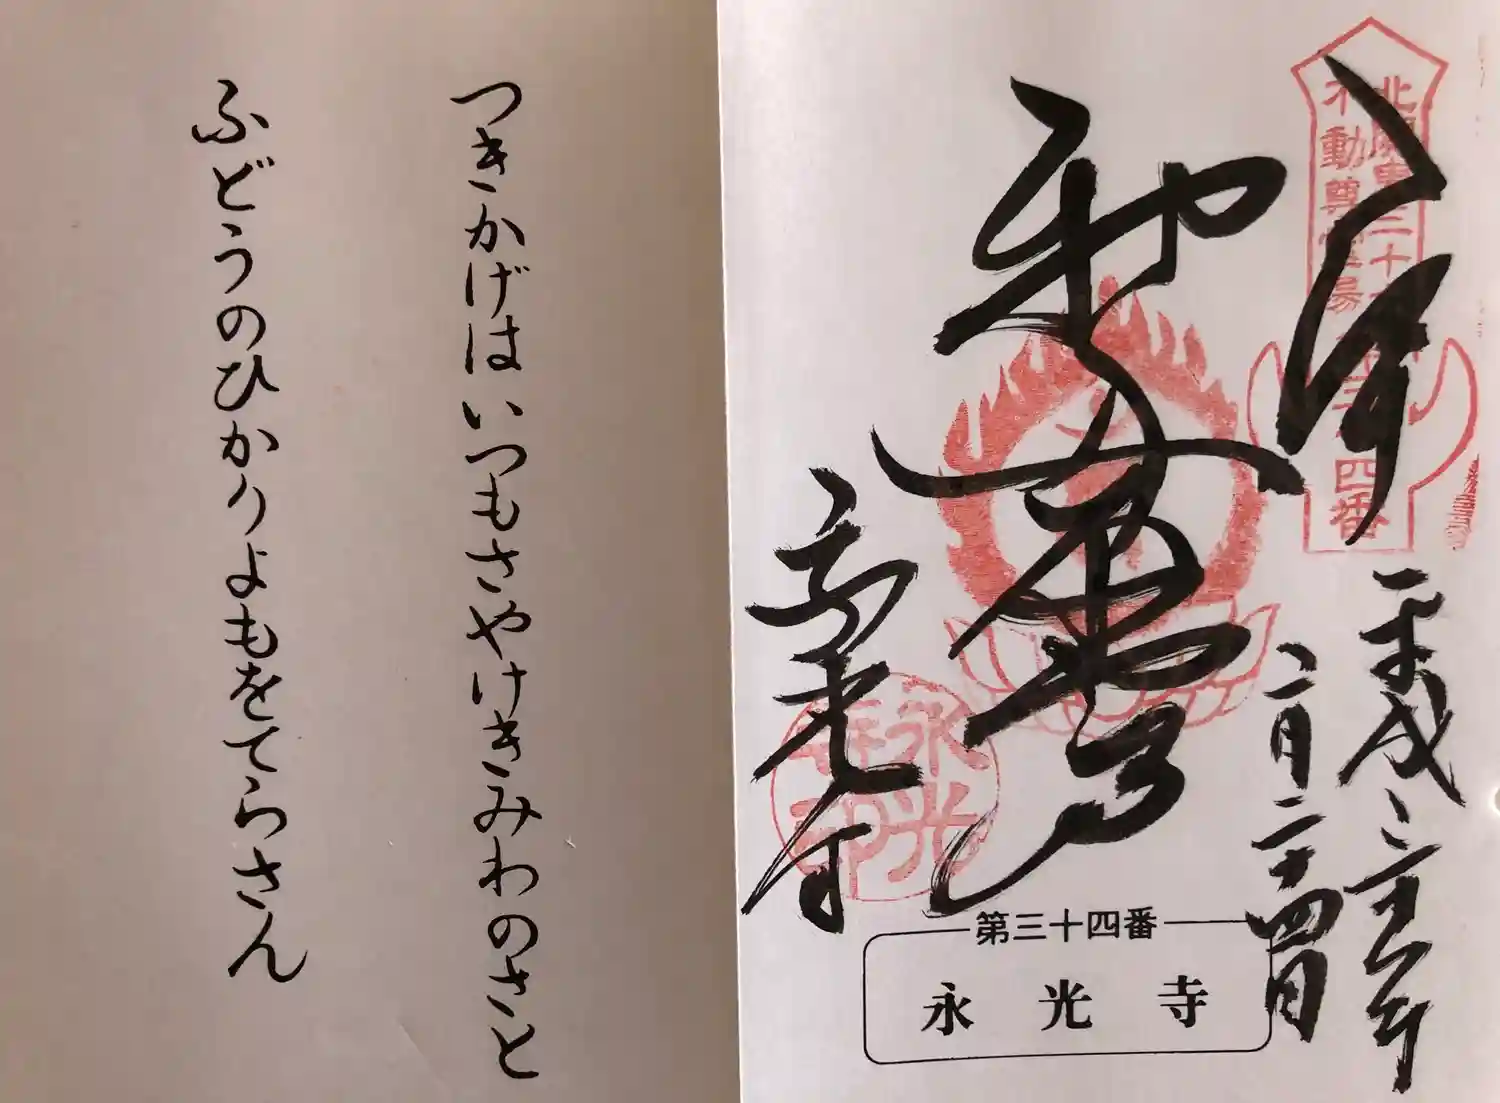 北関東三十六
不動尊霊場
四番
奉拝
平成三十年
二月二十四日
永光寺
永光寺印
第三十四番
永光寺
つきかげはいつもさやけきみわのさと
ふどうのひかりよもをてらさん